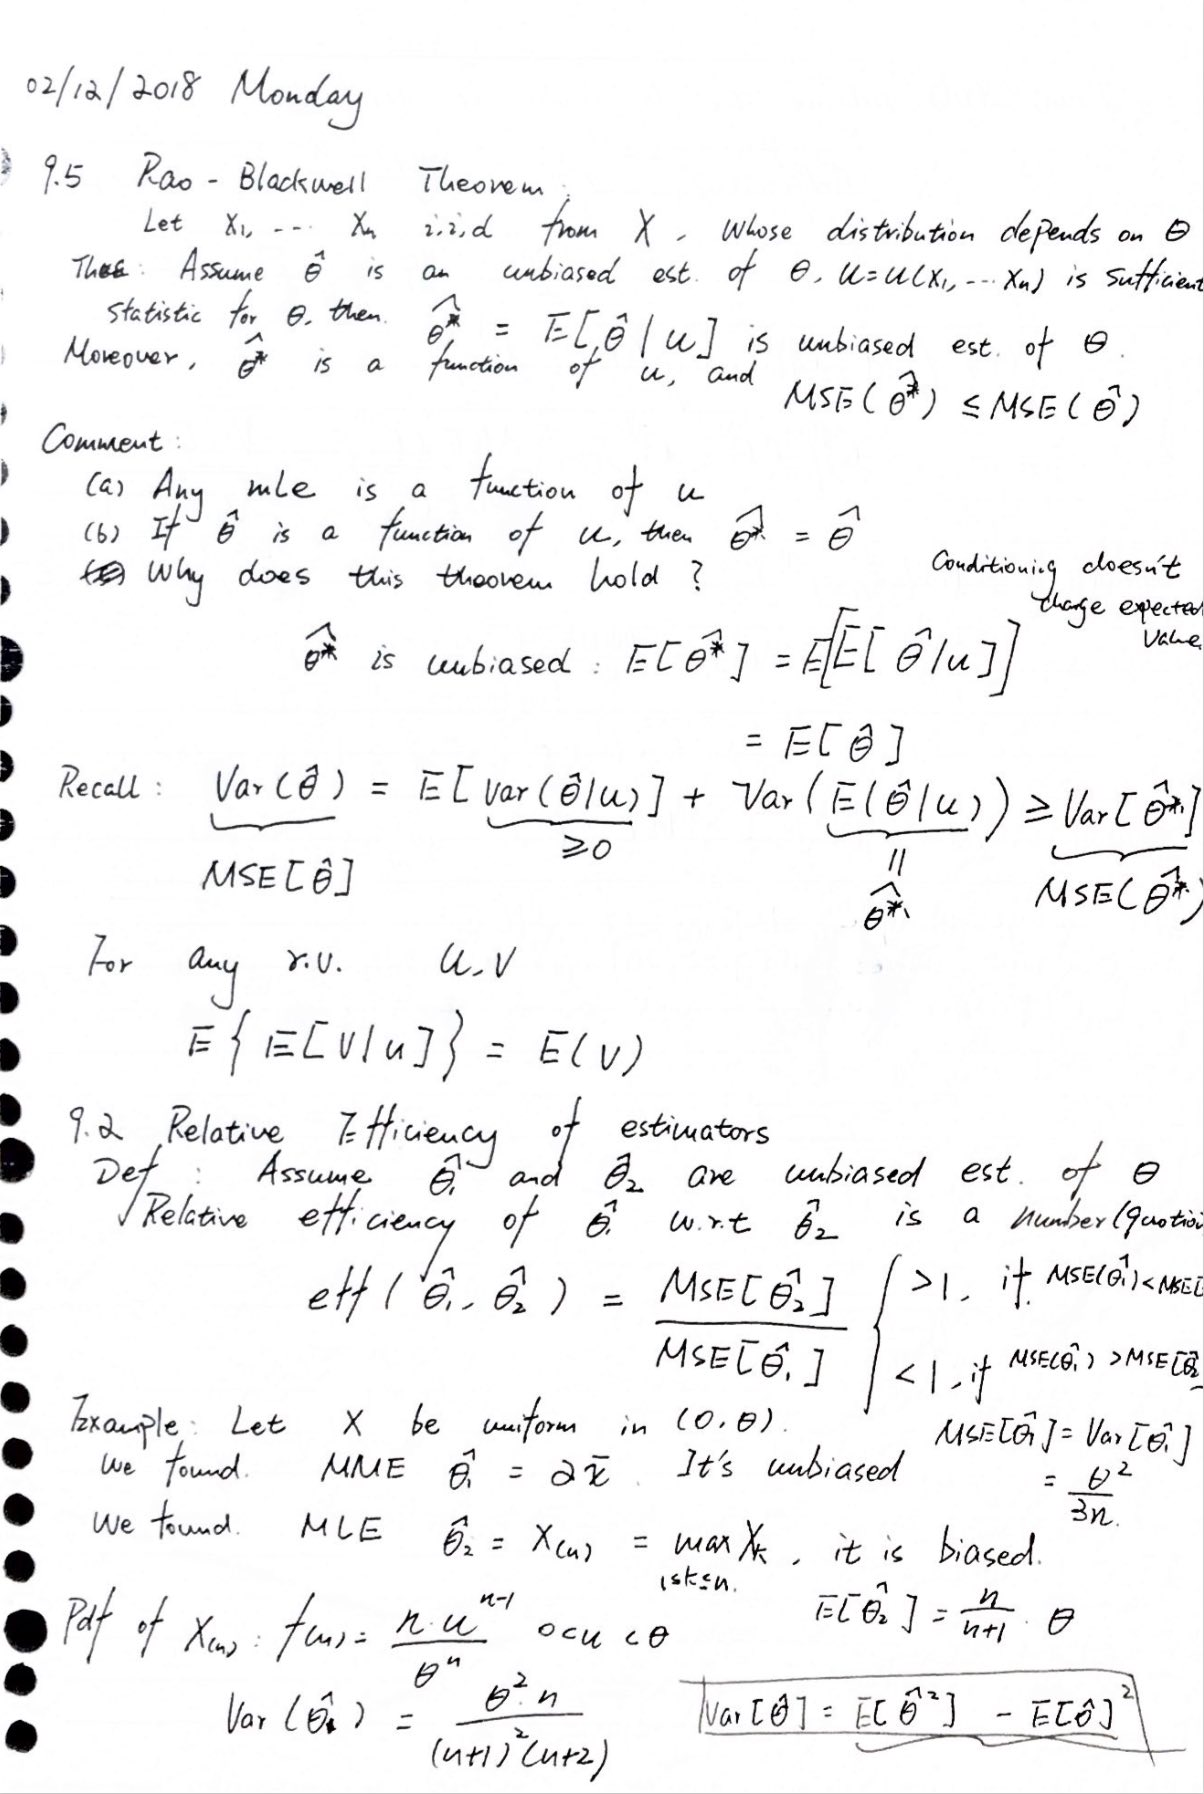 02/12/2018 Monday
9.5 Rao-Blackwell Theorem:
Let X₁, --- Xn i.i.d from X, whose distribution depends on θ
Assume θ̂ is an unbiased est. of θ, u=u(X₁, --- Xn) is sufficient
statistic for θ, then θ̂* = E[θ̂|u] is unbiased est. of θ.
Moreover, θ̂* is a function of u, and MSE(θ̂*) ≤ MSE(θ̂)
Comment:
(a) Any mle is a function of u
(b) If θ̂ is a function of u, then θ̂* = θ̂
Why does this theorem hold ?
Conditioning doesn't
change expected
value
θ̂* is unbiased: E[θ̂*] = E[E[θ̂|u]]
= E[θ̂]
Recall: Var(θ̂) = E[var(θ̂|u)] + Var(E(θ̂|u)) ≥ Var[θ̂*]
≥0 ||
MSE[θ̂] θ̂* MSE(θ̂*)
For any r.v. u,v
E{E[v|u]} = E(v)
9.2 Relative Efficiency of estimators
Def: Assume θ̂₁ and θ̂₂ are unbiased est. of θ
Relative efficiency of θ̂₁ w.r.t θ̂₂ is a number(quotion
eff(θ̂₁, θ̂₂) = MSE[θ̂₂] / MSE[θ̂₁] { >1, if MSE(θ̂₁)<MSE[
<1, if MSE(θ̂₁) >MSE[θ̂₂
Example: Let X be uniform in (0,θ).
We found MME θ̂₁ = 2x̄. It's unbiased
MSE[θ̂₁] = Var[θ̂₁]
= θ² / 3n.
We found MLE θ̂₂ = X(n) = max Xk, it is biased.
1≤k≤n.
E[θ̂₂] = n/n+1 · θ
Pdf of X(n): f(u)= n·uⁿ⁻¹ / θⁿ 0<u<θ
Var(θ̂₂) = θ²·n / (n+1)²(n+2)
Var[θ̂] = E[θ̂²] - E[θ̂]²